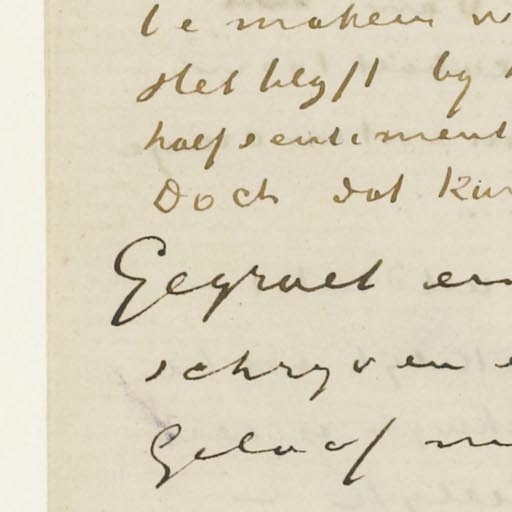 te maken
Het blyft by
half sentiment
Doch dat kun
Gegroet en
schryven
Geloof m